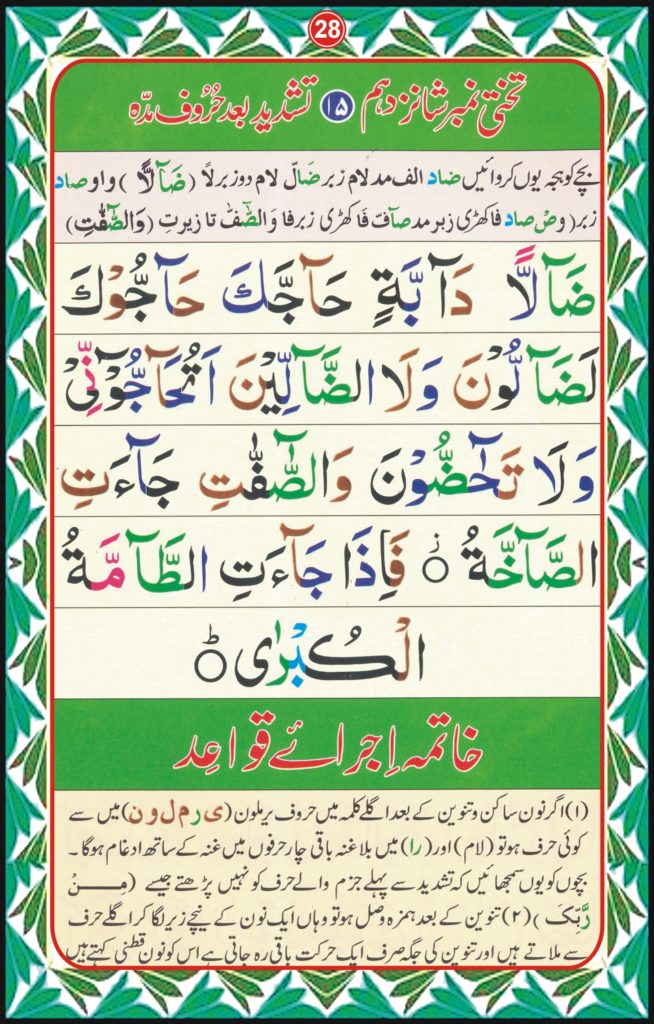 28
تختی نمبر شانزدہم ۱۵ تشدید بعد حُرُوف مدّہ
بچے کو ہجہ یوں کروائیں ضاد الف مد لام زبر ضَآلّ لام دو زبر لاً ( ضَآلاًّ ) واو صاد
زبر( وصْ صاد فا کھڑی زبر مد صآفّ فَا کھڑی زبر فا وَالصّٰٓفّٰ تا زیرتِ (وَالصّٰٓفّٰتِ)
ضَآلاًّ دَآبَّةٍ حَآجَّكَ حَآجُّوْكَ
لَضَآلُّوْنَ وَلَا الضَّآلِّيْنَ اَتُحَآجُّوْٓنِّيْ
وَلَا تَحٰٓضُّوْنَ وَالصّٰٓفّٰتِ جَآءَتِ
الصَّآخَّةُ ۝ز فَاِذَا جَآءَتِ الطَّآمَّةُ
الْكُبْرٰى ۝ط
خاتمہ اِجرائے قواعِد
(۱) اگر نون ساکن و تنوین کے بعد اگلے کلمہ میں حروف یرملون (ی ر م ل و ن) میں سے
کوئی حرف ہو تو (لام) اور (را) میں بلا غنہ باقی چار حرفوں میں غنہ کے ساتھ ادغام ہوگا ۔
بچوں کو یوں سمجھائیں کہ تشدید سے پہلے جزم والے حرف کو نہیں پڑھتے جیسے (مِنْ
رَّبِّکَ )(۲) تنوین کے بعد ہمزہ وصل ہو تو وہاں ایک نون کے نیچے زیر لگا کر اگلے حرف
سے ملاتے ہیں اور تنوین کی جگہ صرف ایک حرکت باقی رہ جاتی ہے اس کو نون قطنی کہتے ہیں